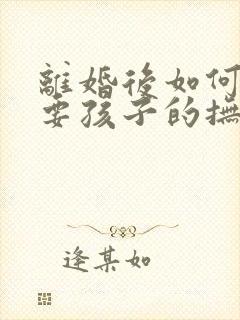 離婚後如何
要孩子的撫
逢某如